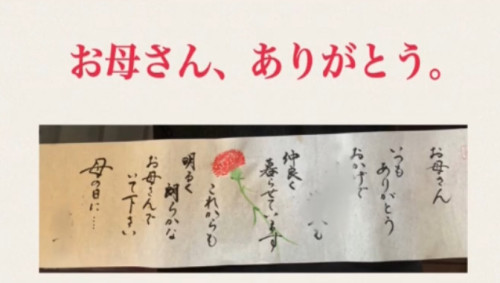 お母さん、ありがとう。
お母さん
いつも
ありがとう
おかげで
仲良く
暮らせています
これからも
明るく
朗らかな
お母さんで
いて下さい
母の日に…